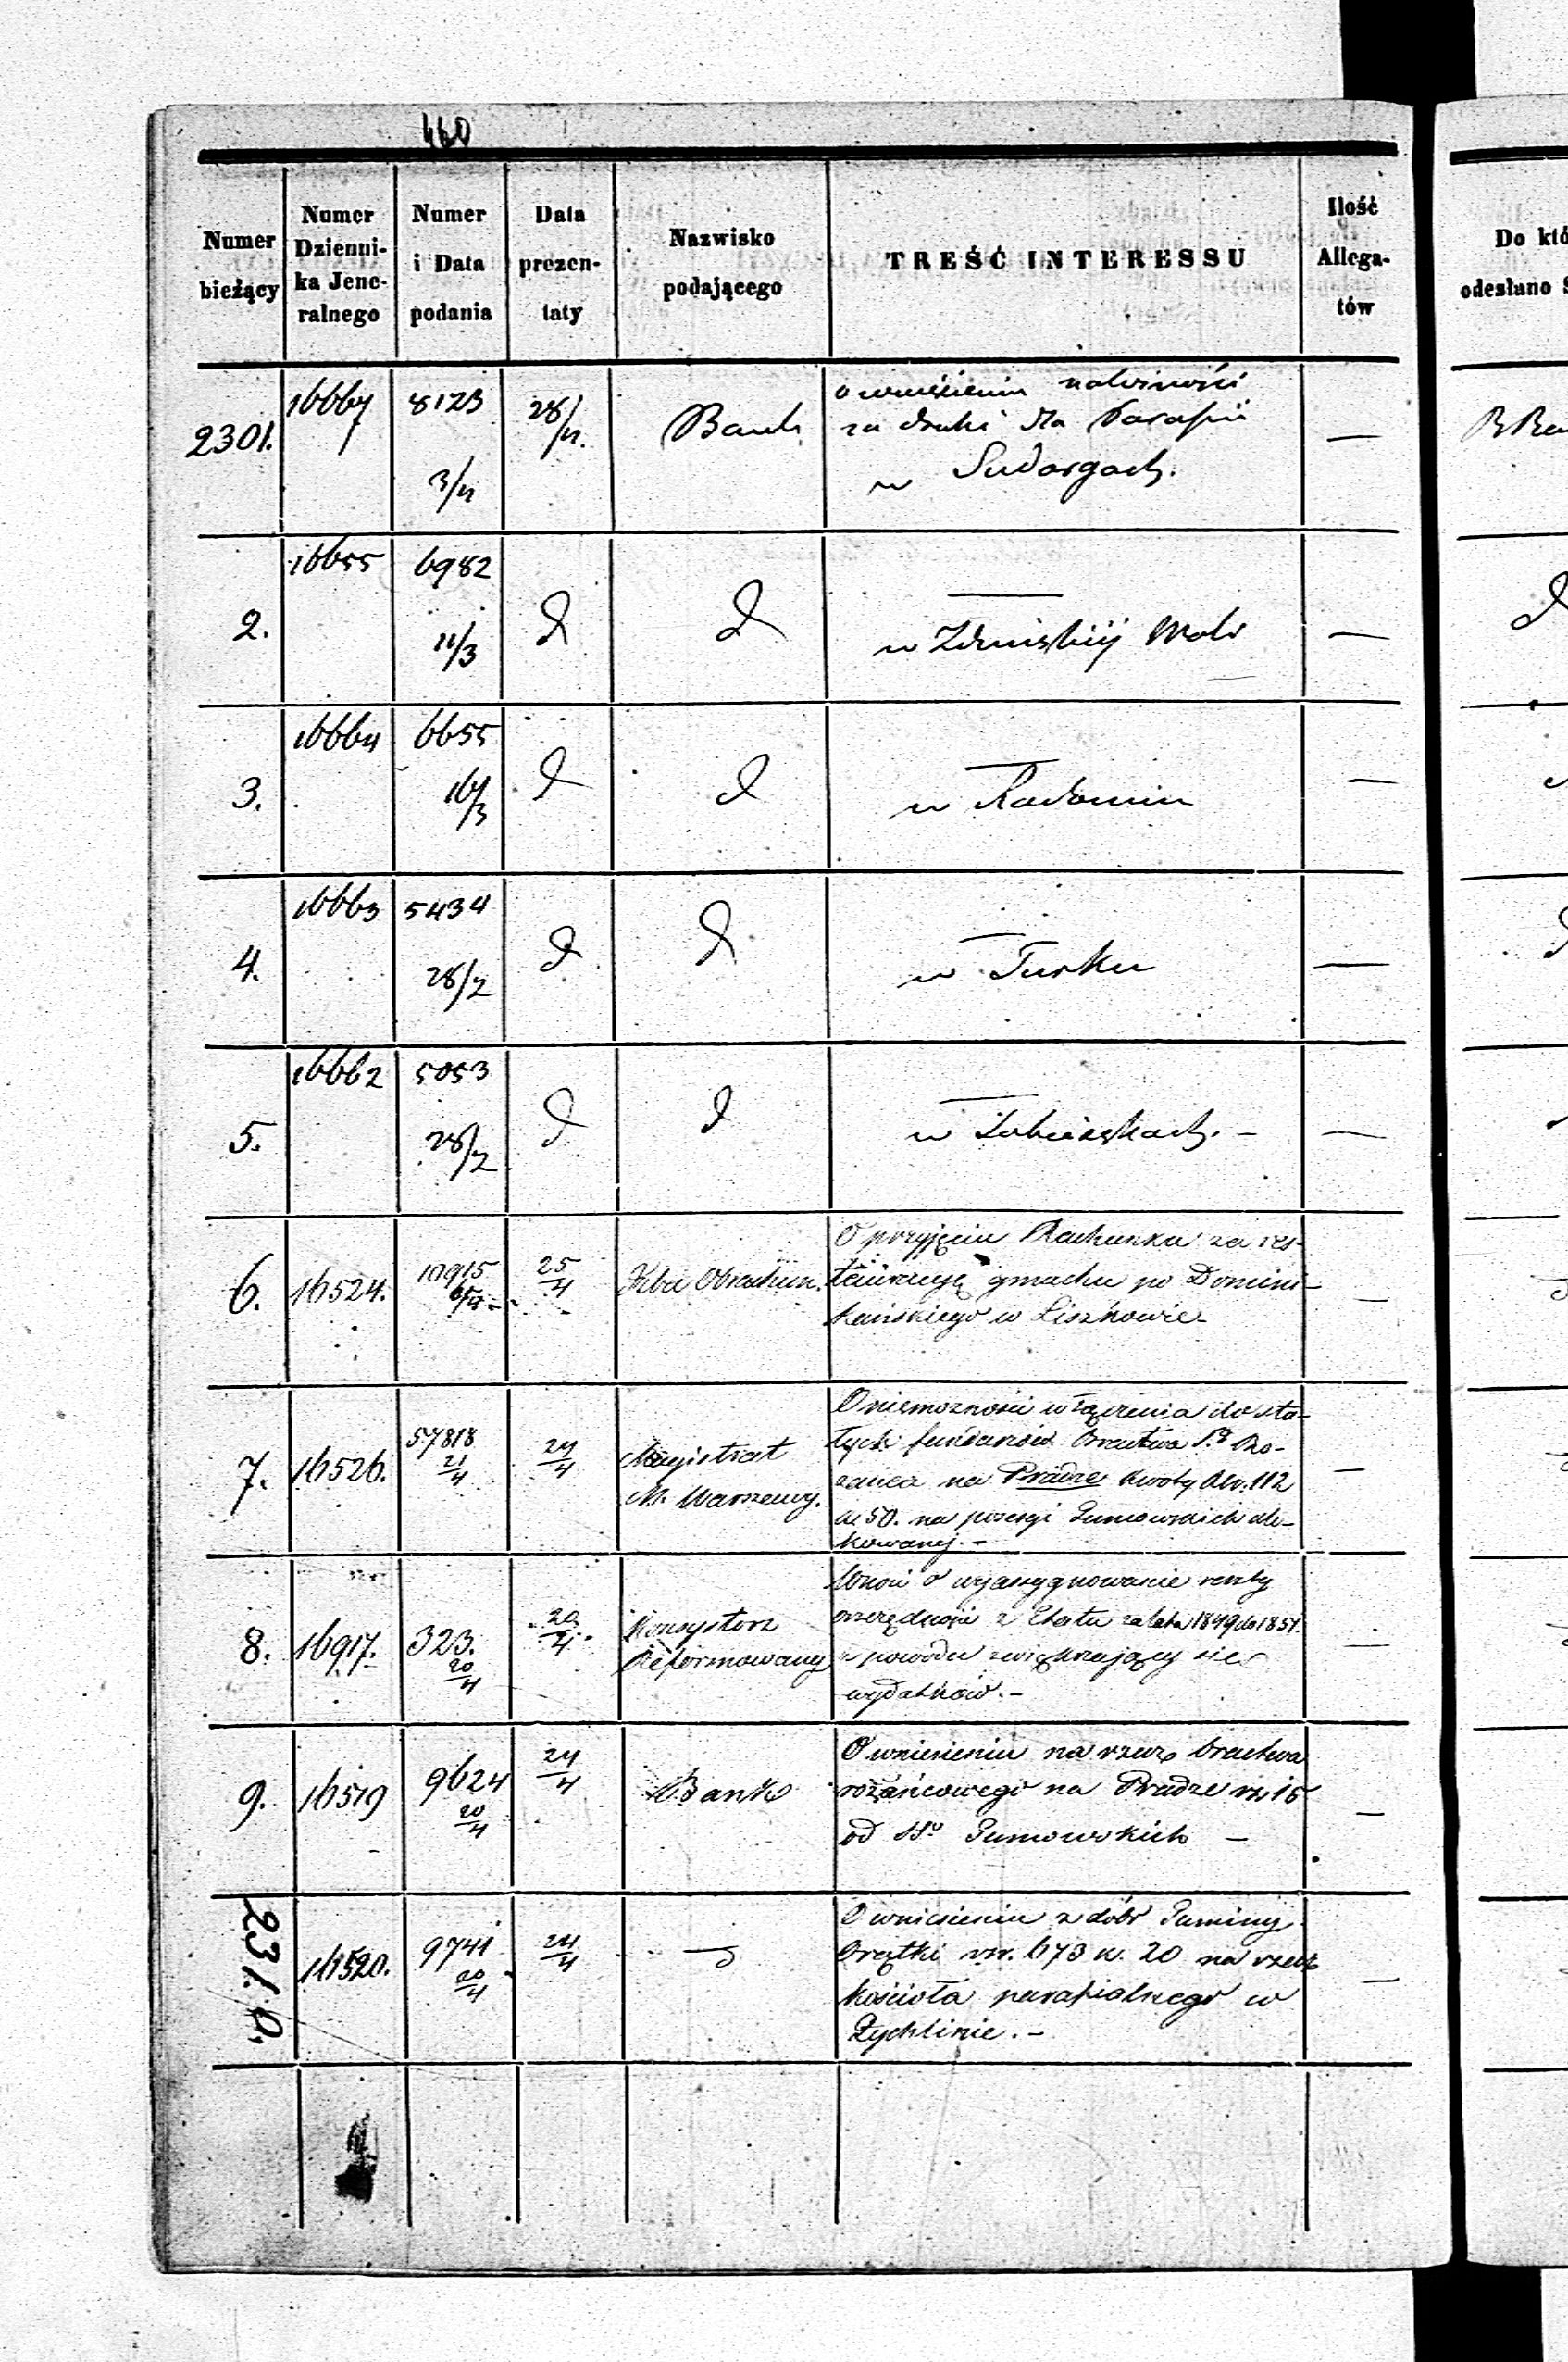 460
Numer bieżący
Numer Dzienni-
ka Jene-
ralnego
Numer i Data podania
Data prezen-
taty
Nazwisko podającego
TREŚĆ INTERESSU
Ilość Allega-
tów
Do któ
odesłano S
2301.
16667
8123
3/4
28/4.
Bank
o wniesieniu należności
za druki dla Parafii
w Sudargach.
—
2.
16655
6982
11/3
d
d
—
w Zduńskiij Woli
—
3.
16664
6655
16/3
d
d
—
w Radomin
—
4.
16663
5434
28/2
d
d
—
w Turku
—
5.
16662
5053
28/2
d
d
—
w
—
6.
16524.
10915
25/4
Izba Obrachun.
O przyjęciu Rachunku za res-
tauracyę gmachu po Domini-
kańskiego w Liszkowie
—
7.
16526.
57818
21/4
24/4
Magistrat
M. Warszawy.
O niemożności włączenia do sta-
łych funduszów Bractwa Ró-
żańca na Pradze kwoty 112
50. na posesyi Gumowskich ulo-
kowanej. —
—
8.
16917.
323.
20/4
20/4
Konsystorz
Reformowany
Wnosi o wyassygnowanie reszty
oszczędności z Etatu za lata 1849 do 1851.
z powodu zwiększający się
wydatków. —
—
9.
16519
9624
20/4
24/4
Bank
O wniesieniu na rzecz bractwa
rożańcowego na Pradze rs. 15
od Gumowskich —
—
2310.
16520.
9741
20/4
24/4
d
O wniesieniu z dóbr Guminy
Orątki 673 k. 20 na rzecz
kościoła parafialnego w
Żychlinie. —
—